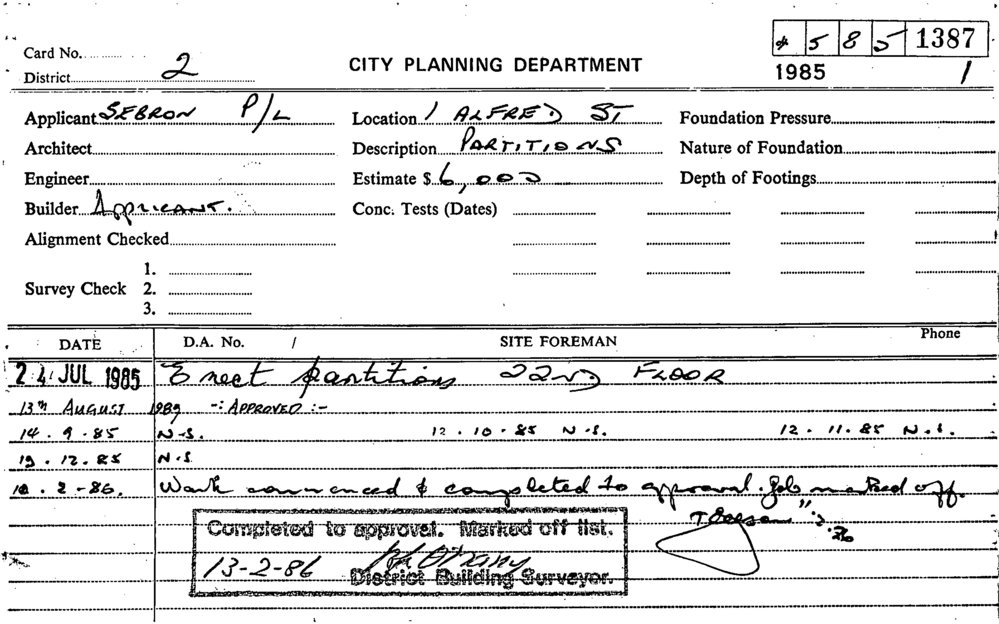 * 5 8 5 1387
Card No.
CITY PLANNING DEPARTMENT
1985 1
District 2
Applicant SEBRON P/L Location 1 ALFRED ST Foundation Pressure
Architect Description PARTITIONS Nature of Foundation
Engineer Estimate $ 6,000 Depth of Footings
Builder APPLICANT. Conc. Tests (Dates)
Alignment Checked
1.
Survey Check 2.
3.
DATE D.A. No. / SITE FOREMAN Phone
24 JUL 1985 Erect partitions 22ND FLOOR
13TH AUGUST 1985 -: APPROVED :-
14.9.85 N-S. 12.10.85 N.S. 12.11.85 N.S.
19.12.85 N.S
10.2-86. Work commenced & completed to approval. Job marked off.
Completed to approval. Marked off list.
13-2-86
District Building Surveyor.